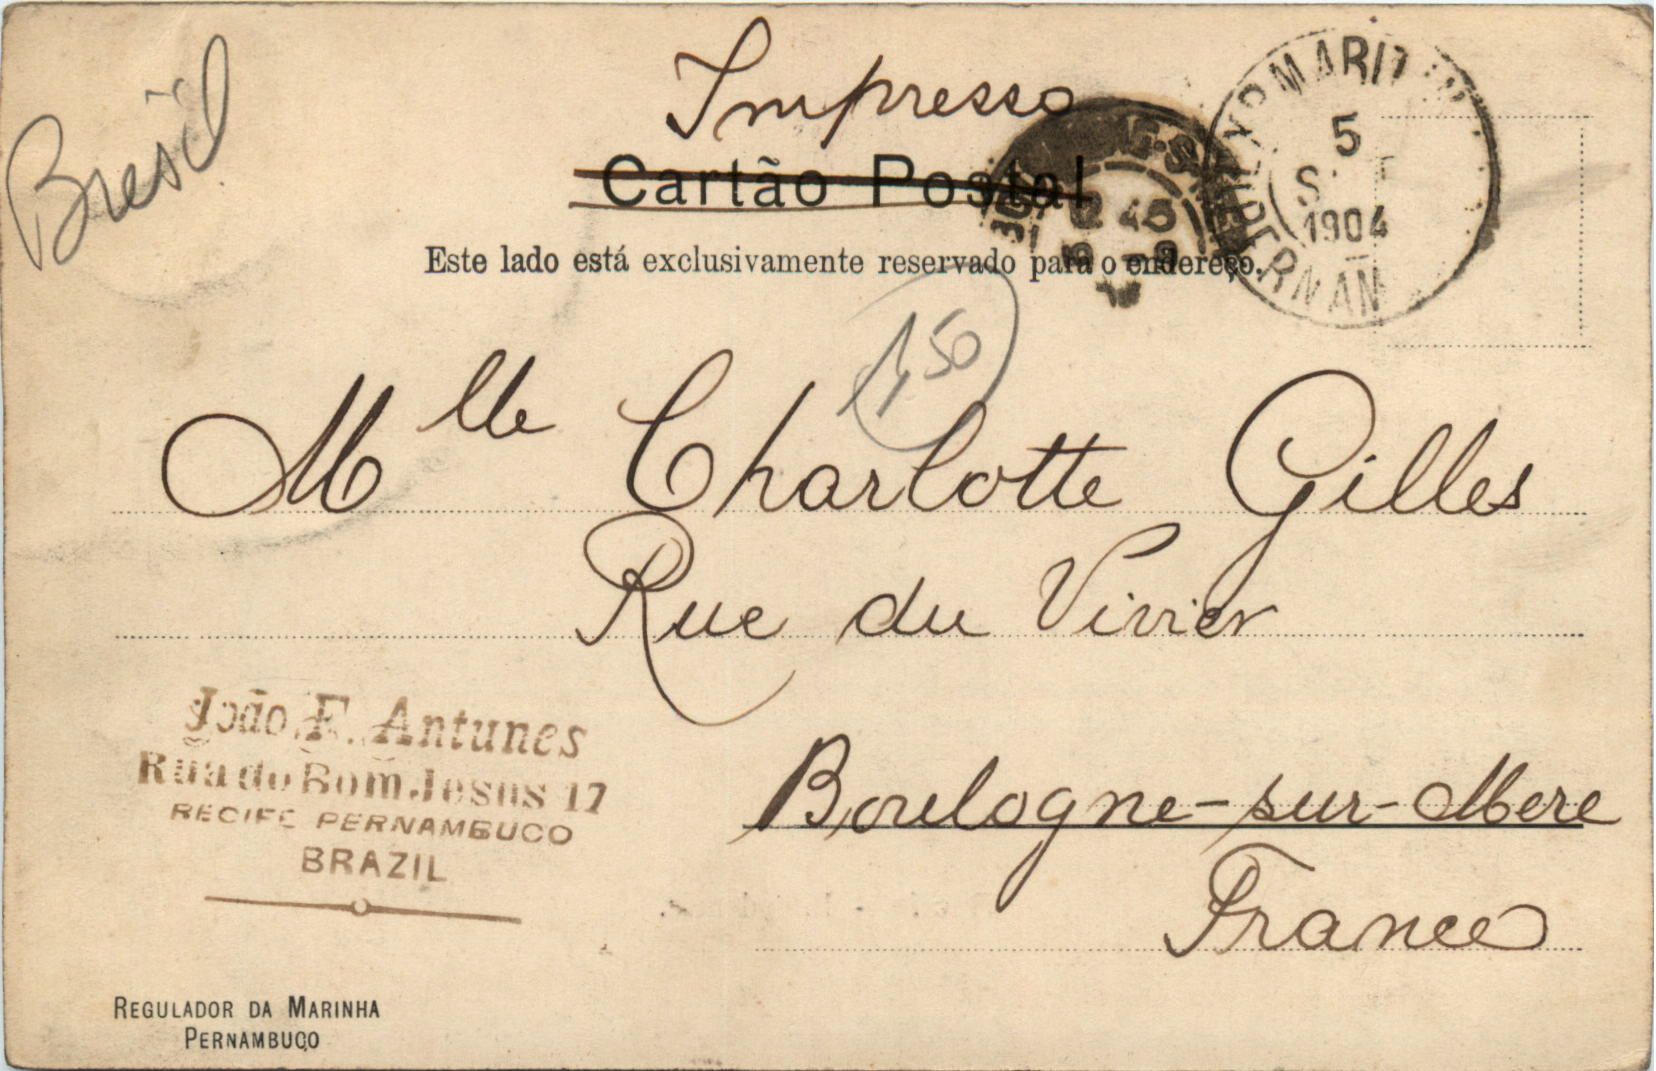 Bresil
Impresso
Cartão Postal
Este lado está exclusivamente reservado para o endereço.
5
1904
1,50
Mlle Charlotte Gilles
Rue du Vivier
Boulogne-sur-Mere
France
João F. Antunes
Rua do Bom Jesus 17
RECIFE PERNAMBUCO
BRAZIL
REGULADOR DA MARINHA
PERNAMBUCO